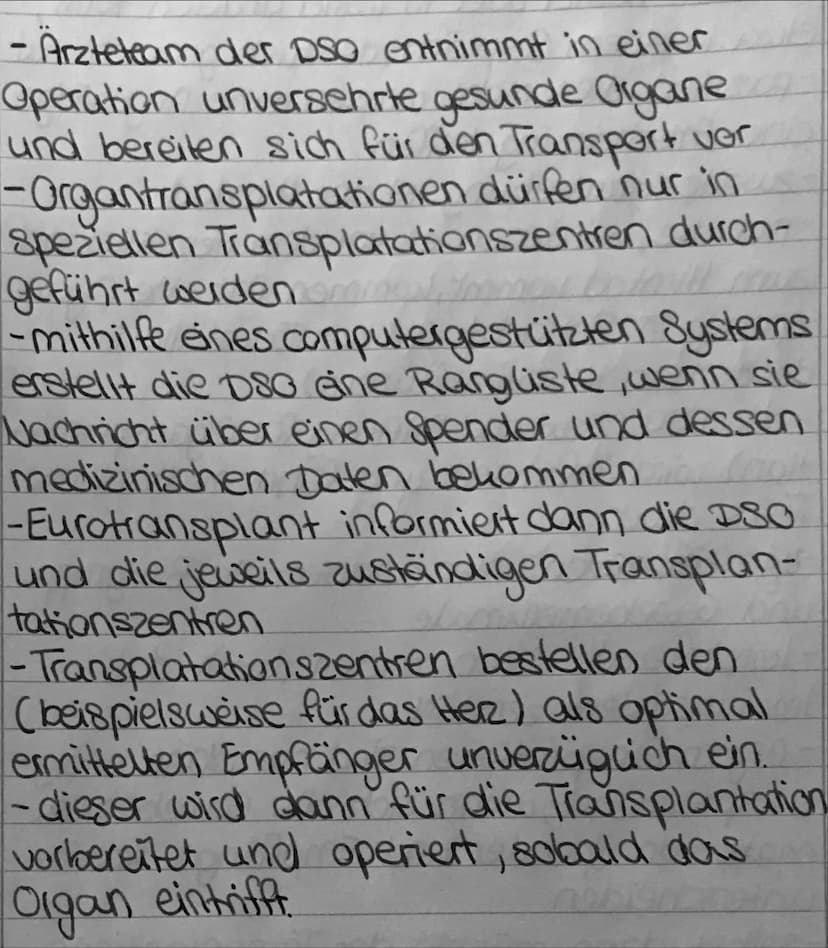 - Ärzteteam der DSO entnimmt in einer
Operation unversehrte gesunde Organe
und bereiten sich für den Transport vor
- Organtransplatationen dürfen nur in
speziellen Transplatationszentren durch-
geführt werden
- mithilfe eines computergestützten Systems
erstellt die DSO eine Rangliste, wenn sie
Nachricht über einen Spender und dessen
medizinischen Daten bekommen
- Eurotransplant informiert dann die DSO
und die jeweils zuständigen Transplan-
tationszentren
- Transplatationszentren bestellen den
(beispielsweise für das Herz) als optimal
ermittelten Empfänger unverzüglich ein.
- dieser wird dann für die Transplantation
vorbereitet und operiert, sobald das
Organ eintrifft.